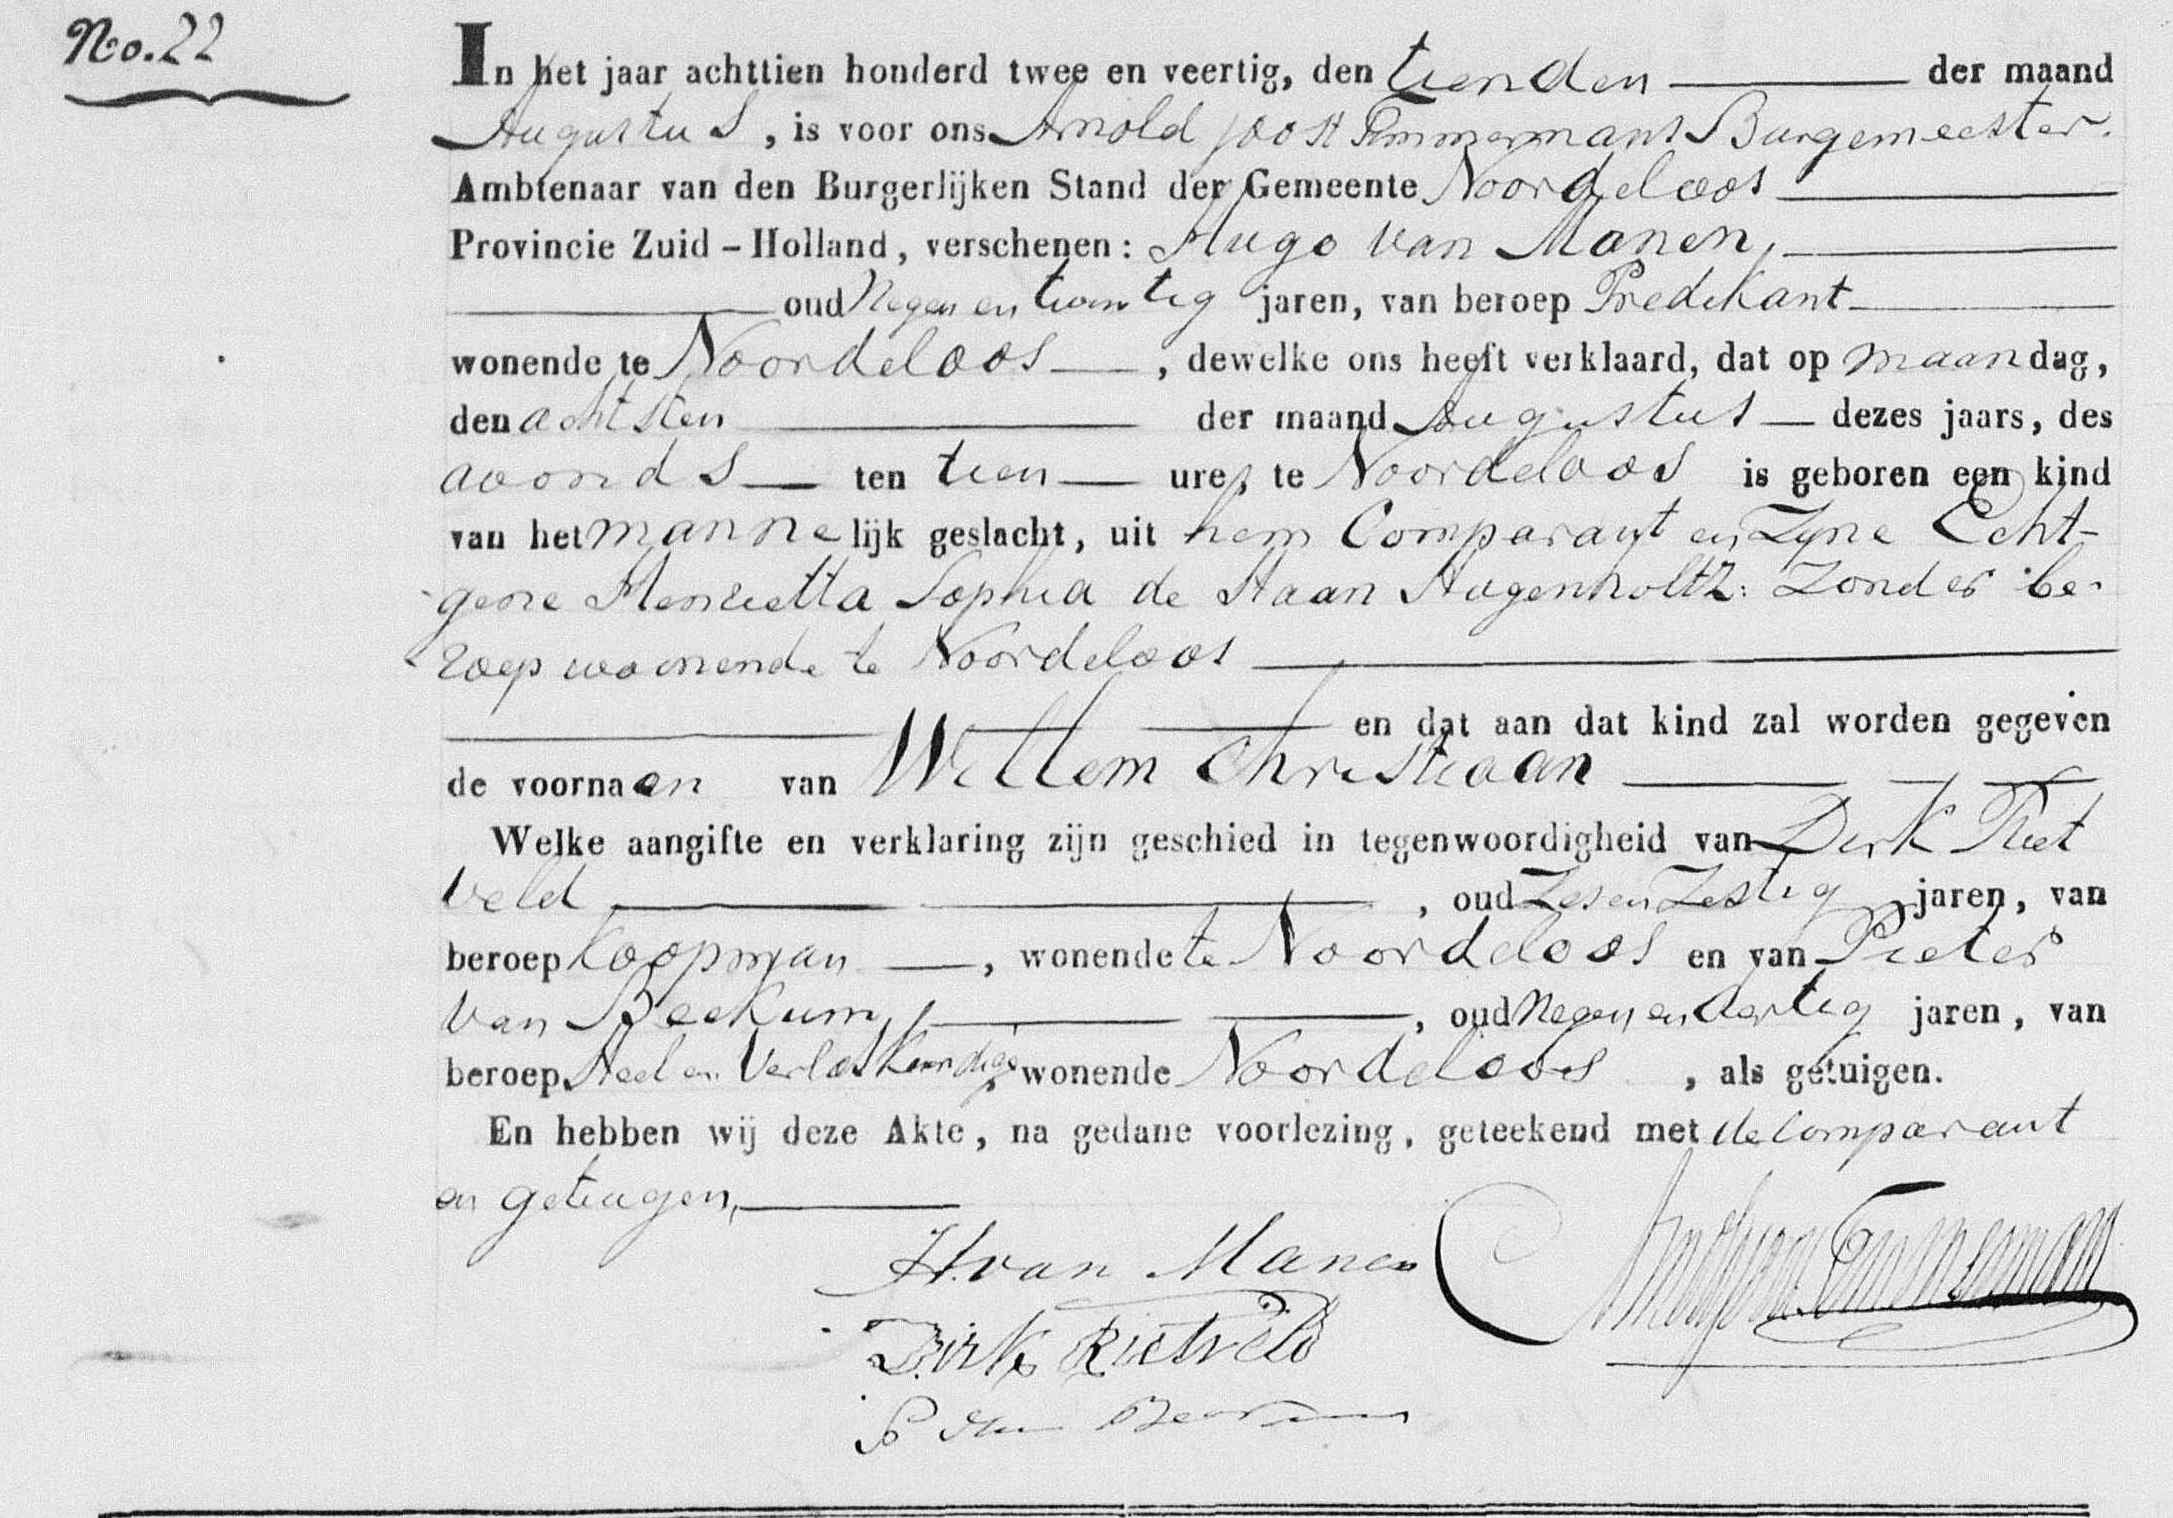 No. 22
In het jaar achttien honderd twee en veertig, den tienden der maand
Augustus, is voor ons Arnold Joost Timmermans Burgemeester
Ambtenaar van den Burgerlijken Stand der Gemeente Noordeloos
Provincie Zuid-Holland, verschenen: Hugo van Manen,
oud Negen en twintig jaren, van beroep Predikant
wonende te Noordeloos, dewelke ons heeft verklaard, dat op maandag,
den achtsten der maand Augustus dezes jaars, des
avonds ten tien ure, te Noordeloos is geboren een kind
van het mannelijk geslacht, uit hem Comparant en Zyne Echt-
gene Henrietta Sophia de Haan Hugenholtz: Zonder be-
roep woonende te Noordeloos
en dat aan dat kind zal worden gegeven
de voornaen van Willem Christiaan
Welke aangifte en verklaring zijn geschied in tegenwoordigheid van Dirk Riet
veld, oud Zes en Zestig jaren, van
beroep Koopman, wonende te Noordeloos en van Pieter
van Beekum, oud Negen en dertig jaren, van
beroep Heel en Verloskundige wonende Noordeloos, als getuigen.
En hebben wij deze Akte, na gedane voorlezing, geteekend met de Comparant
en getuigen,
H. van Manen
Dirk Rietveld
P van